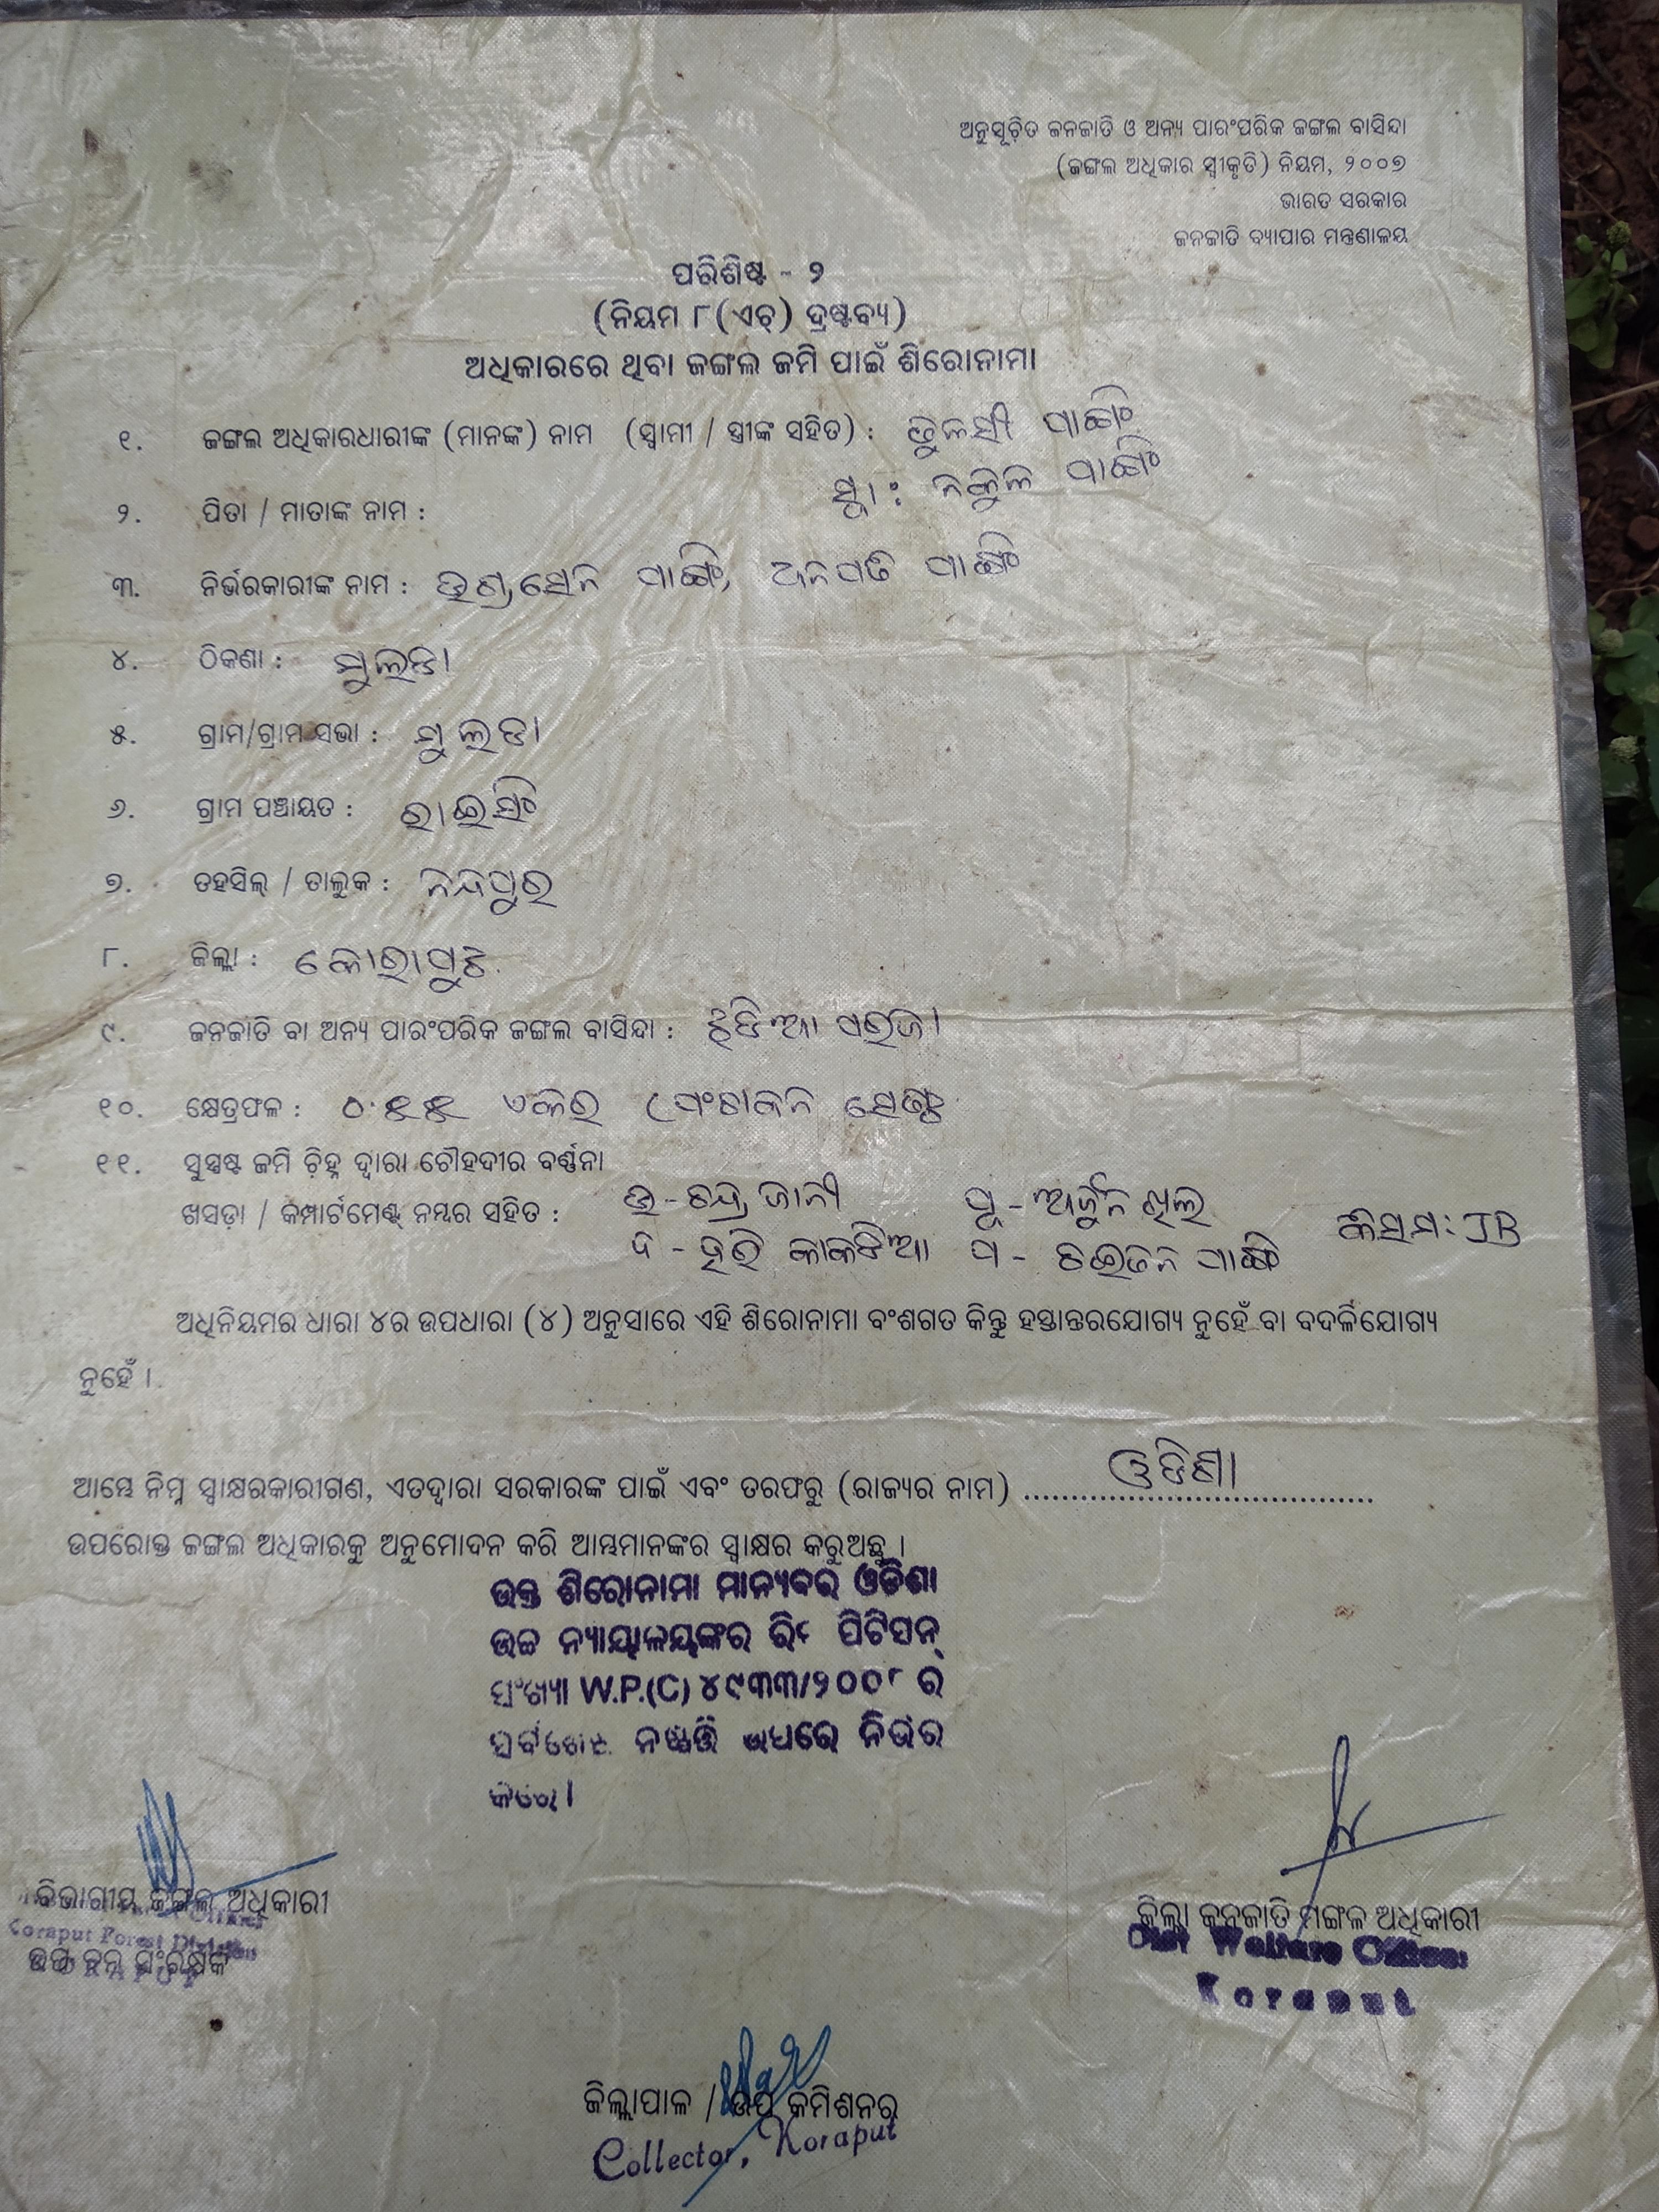 ଅନୁସୂଚିତ ଜନଜାତି ଓ ଅନ୍ୟ ପାରଂପରିକ ଜଙ୍ଗଲ ବାସିନ୍ଦା
(ଜଙ୍ଗଲ ଅଧିକାର ସ୍ୱୀକୃତି) ନିୟମ, ୨୦୦୭
ଭାରତ ସରକାର
ଜନଜାତି ବ୍ୟାପାର ମନ୍ତ୍ରଣାଳୟ
ପରିଶିଷ୍ଟ - ୨
(ନିୟମ ୮(ଏଚ୍) ଦ୍ରଷ୍ଟବ୍ୟ)
ଅଧିକାରରେ ଥିବା ଜଙ୍ଗଲ ଜମି ପାଇଁ ଶିରୋନାମା
୧. ଜଙ୍ଗଲ ଅଧିକାରଧାରୀଙ୍କ (ମାନଙ୍କ) ନାମ (ସ୍ୱାମୀ / ସ୍ତ୍ରୀଙ୍କ ସହିତ) : ତୁଳସୀ ପାଙ୍ଗି
ସ୍ୱା: ନକୁଳ ପାଙ୍ଗି
୨. ପିତା / ମାତାଙ୍କ ନାମ :
୩. ନିର୍ଭରକାରୀଙ୍କ ନାମ : ପାଙ୍ଗି, ପାଙ୍ଗି
୪. ଠିକଣା : ମୁଲଡା
୫. ଗ୍ରାମ/ଗ୍ରାମ ସଭା : ମୁଲଡା
୬. ଗ୍ରାମ ପଞ୍ଚାୟତ : ରାଇସିଂ
୭. ତହସିଲ୍ / ତାଲୁକ : ନନ୍ଦପୁର
୮. ଜିଲ୍ଲା : କୋରାପୁଟ
୯. ଜନଜାତି ବା ଅନ୍ୟ ପାରଂପରିକ ଜଙ୍ଗଲ ବାସିନ୍ଦା : ଝଡିଆ ପରଜା
୧୦. କ୍ଷେତ୍ରଫଳ : ୦.୫୫ ଏକର (ପଂଚାବନ ସେଣ୍ଟ
୧୧. ସୁସ୍ପଷ୍ଟ ଜମି ଚିହ୍ନ ଦ୍ୱାରା ଚୌହଦୀର ବର୍ଣ୍ଣନା
ଖସଡ଼ା / କମ୍ପାର୍ଟମେଣ୍ଟ୍ ନମ୍ବର ସହିତ : ଉ - ଚନ୍ଦ୍ର ଜାନୀ ପୂ - ଅର୍ଜୁନ ଖିଲ କିସମ: JB
ଦ - ହରି କାକଡିଆ ପ - ଚଇତନ ପାଙ୍ଗି
ଅଧିନିୟମର ଧାରା ୪ର ଉପଧାରା (୪) ଅନୁସାରେ ଏହି ଶିରୋନାମା ବଂଶଗତ କିନ୍ତୁ ହସ୍ତାନ୍ତରଯୋଗ୍ୟ ନୁହେଁ ବା ବଦଳିଯୋଗ୍ୟ
ନୁହେଁ ।
ଆମ୍ଭେ ନିମ୍ନ ସ୍ୱାକ୍ଷରକାରୀଗଣ, ଏତଦ୍ୱାରା ସରକାରଙ୍କ ପାଇଁ ଏବଂ ତରଫରୁ (ରାଜ୍ୟର ନାମ) ଓଡିଶା
ଉପରୋକ୍ତ ଜଙ୍ଗଲ ଅଧିକାରକୁ ଅନୁମୋଦନ କରି ଆମ୍ଭମାନଙ୍କର ସ୍ୱାକ୍ଷର କରୁଅଛୁ ।
ଉକ୍ତ ଶିରୋନାମା ମାନ୍ୟବର ଓଡିଶା
ଉଚ୍ଚ ନ୍ୟାୟାଳୟଙ୍କର ରିଟ ପିଟିସନ୍
ସଂଖ୍ୟା W.P.(C) ୪୯୩୩/୨୦୦୮ ର
ଉପରେ ନିର୍ଭର
କରେ।
ବିଭାଗୀୟ ଜଙ୍ଗଲ ଅଧିକାରୀ
Koraput Forest Division
ଉପ ବନ ସଂରକ୍ଷକ
ଜିଲ୍ଲା ଜନଜାତି ମଙ୍ଗଳ ଅଧିକାରୀ
Welfare Officer
Koraput
ଜିଲ୍ଲାପାଳ / ଉପ କମିଶନର୍
Collector, Koraput